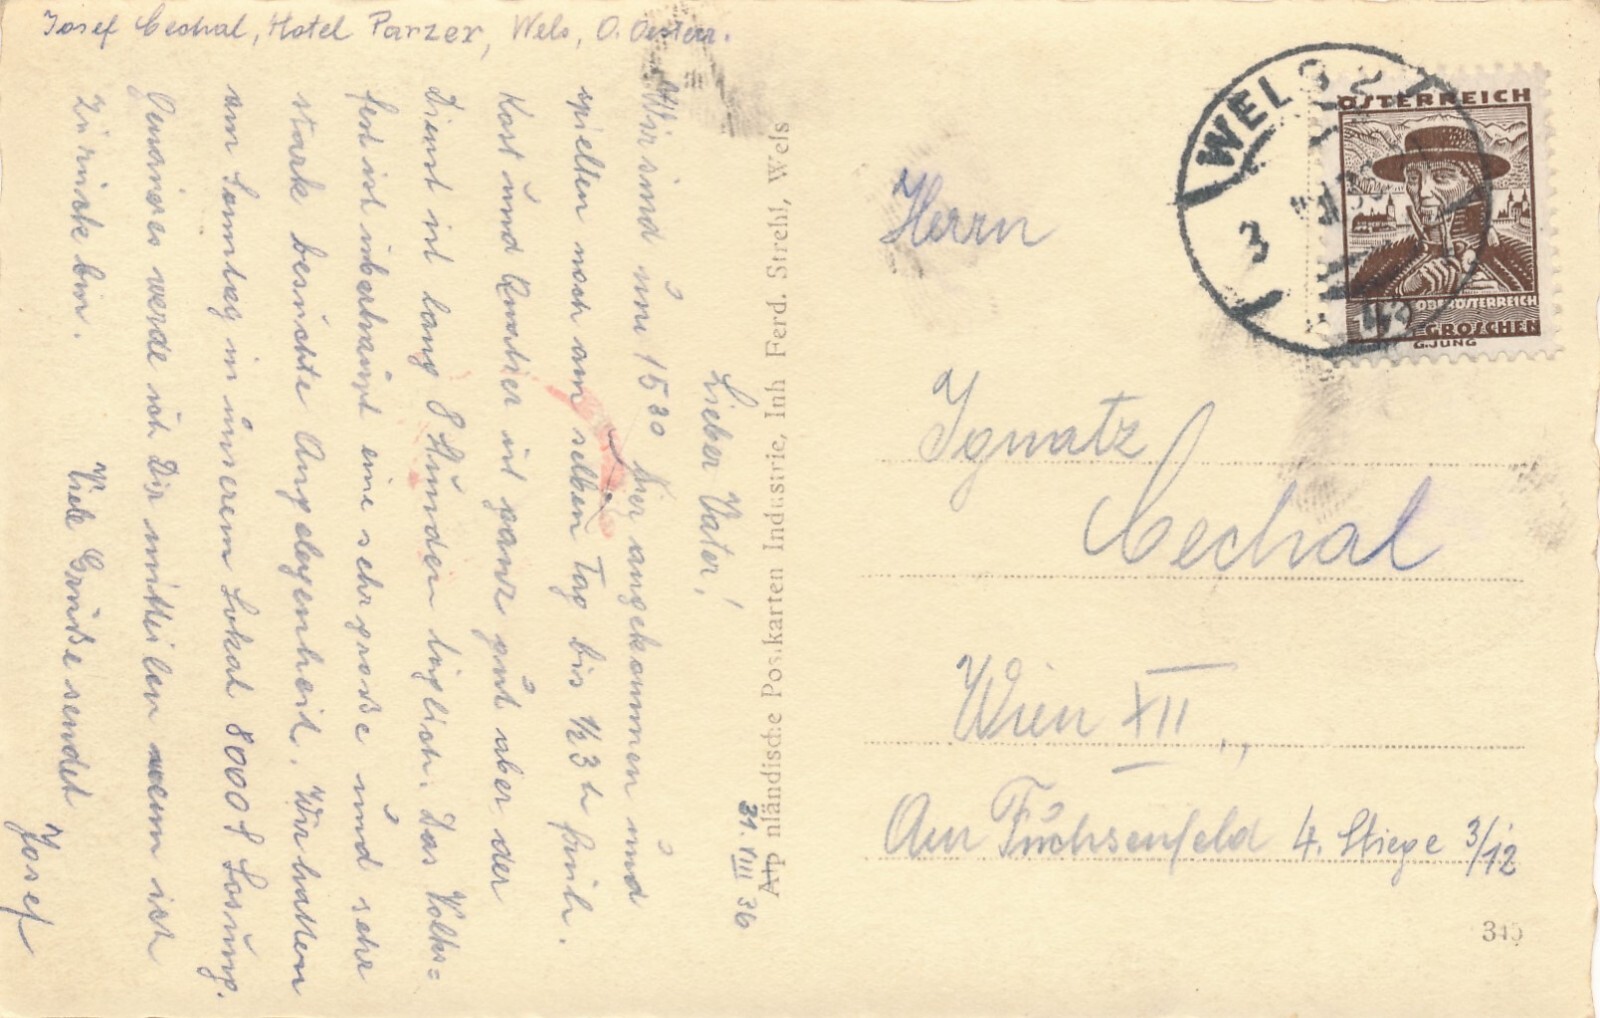 Josef Cechal, Hotel Parzer, Wels, O. Oesterr.
31. VIII 36
Lieber Vater!
Wir sind um 15 30 hier angekommen und
spielten noch am selben Tag bis ½ 3 h früh.
Kost und Quatier ist ganz gut aber der
Dienst ist lang 8 Stunden täglich. Das Volks=
fest ist überhaupt eine sehr große und sehr
stark besuchte Angelegenheit. Wir hatten
am Sonntag in unserem Lokal 8000 S Losung.
Genaueres werde ich Dir mitteilen wenn ich
zurück bin.
Viele Grüße sendet
Josef
Alpenländische Postkarten Industrie, Inh Ferd. Strehl, Wels
WELS 2
3
ÖSTERREICH
OBERÖSTERREICH
12 GROSCHEN
G.JUNG
Herrn
Ignatz
Cechal
Wien XII.,,
Am Fuchsenfeld 4. Stiege 3/12